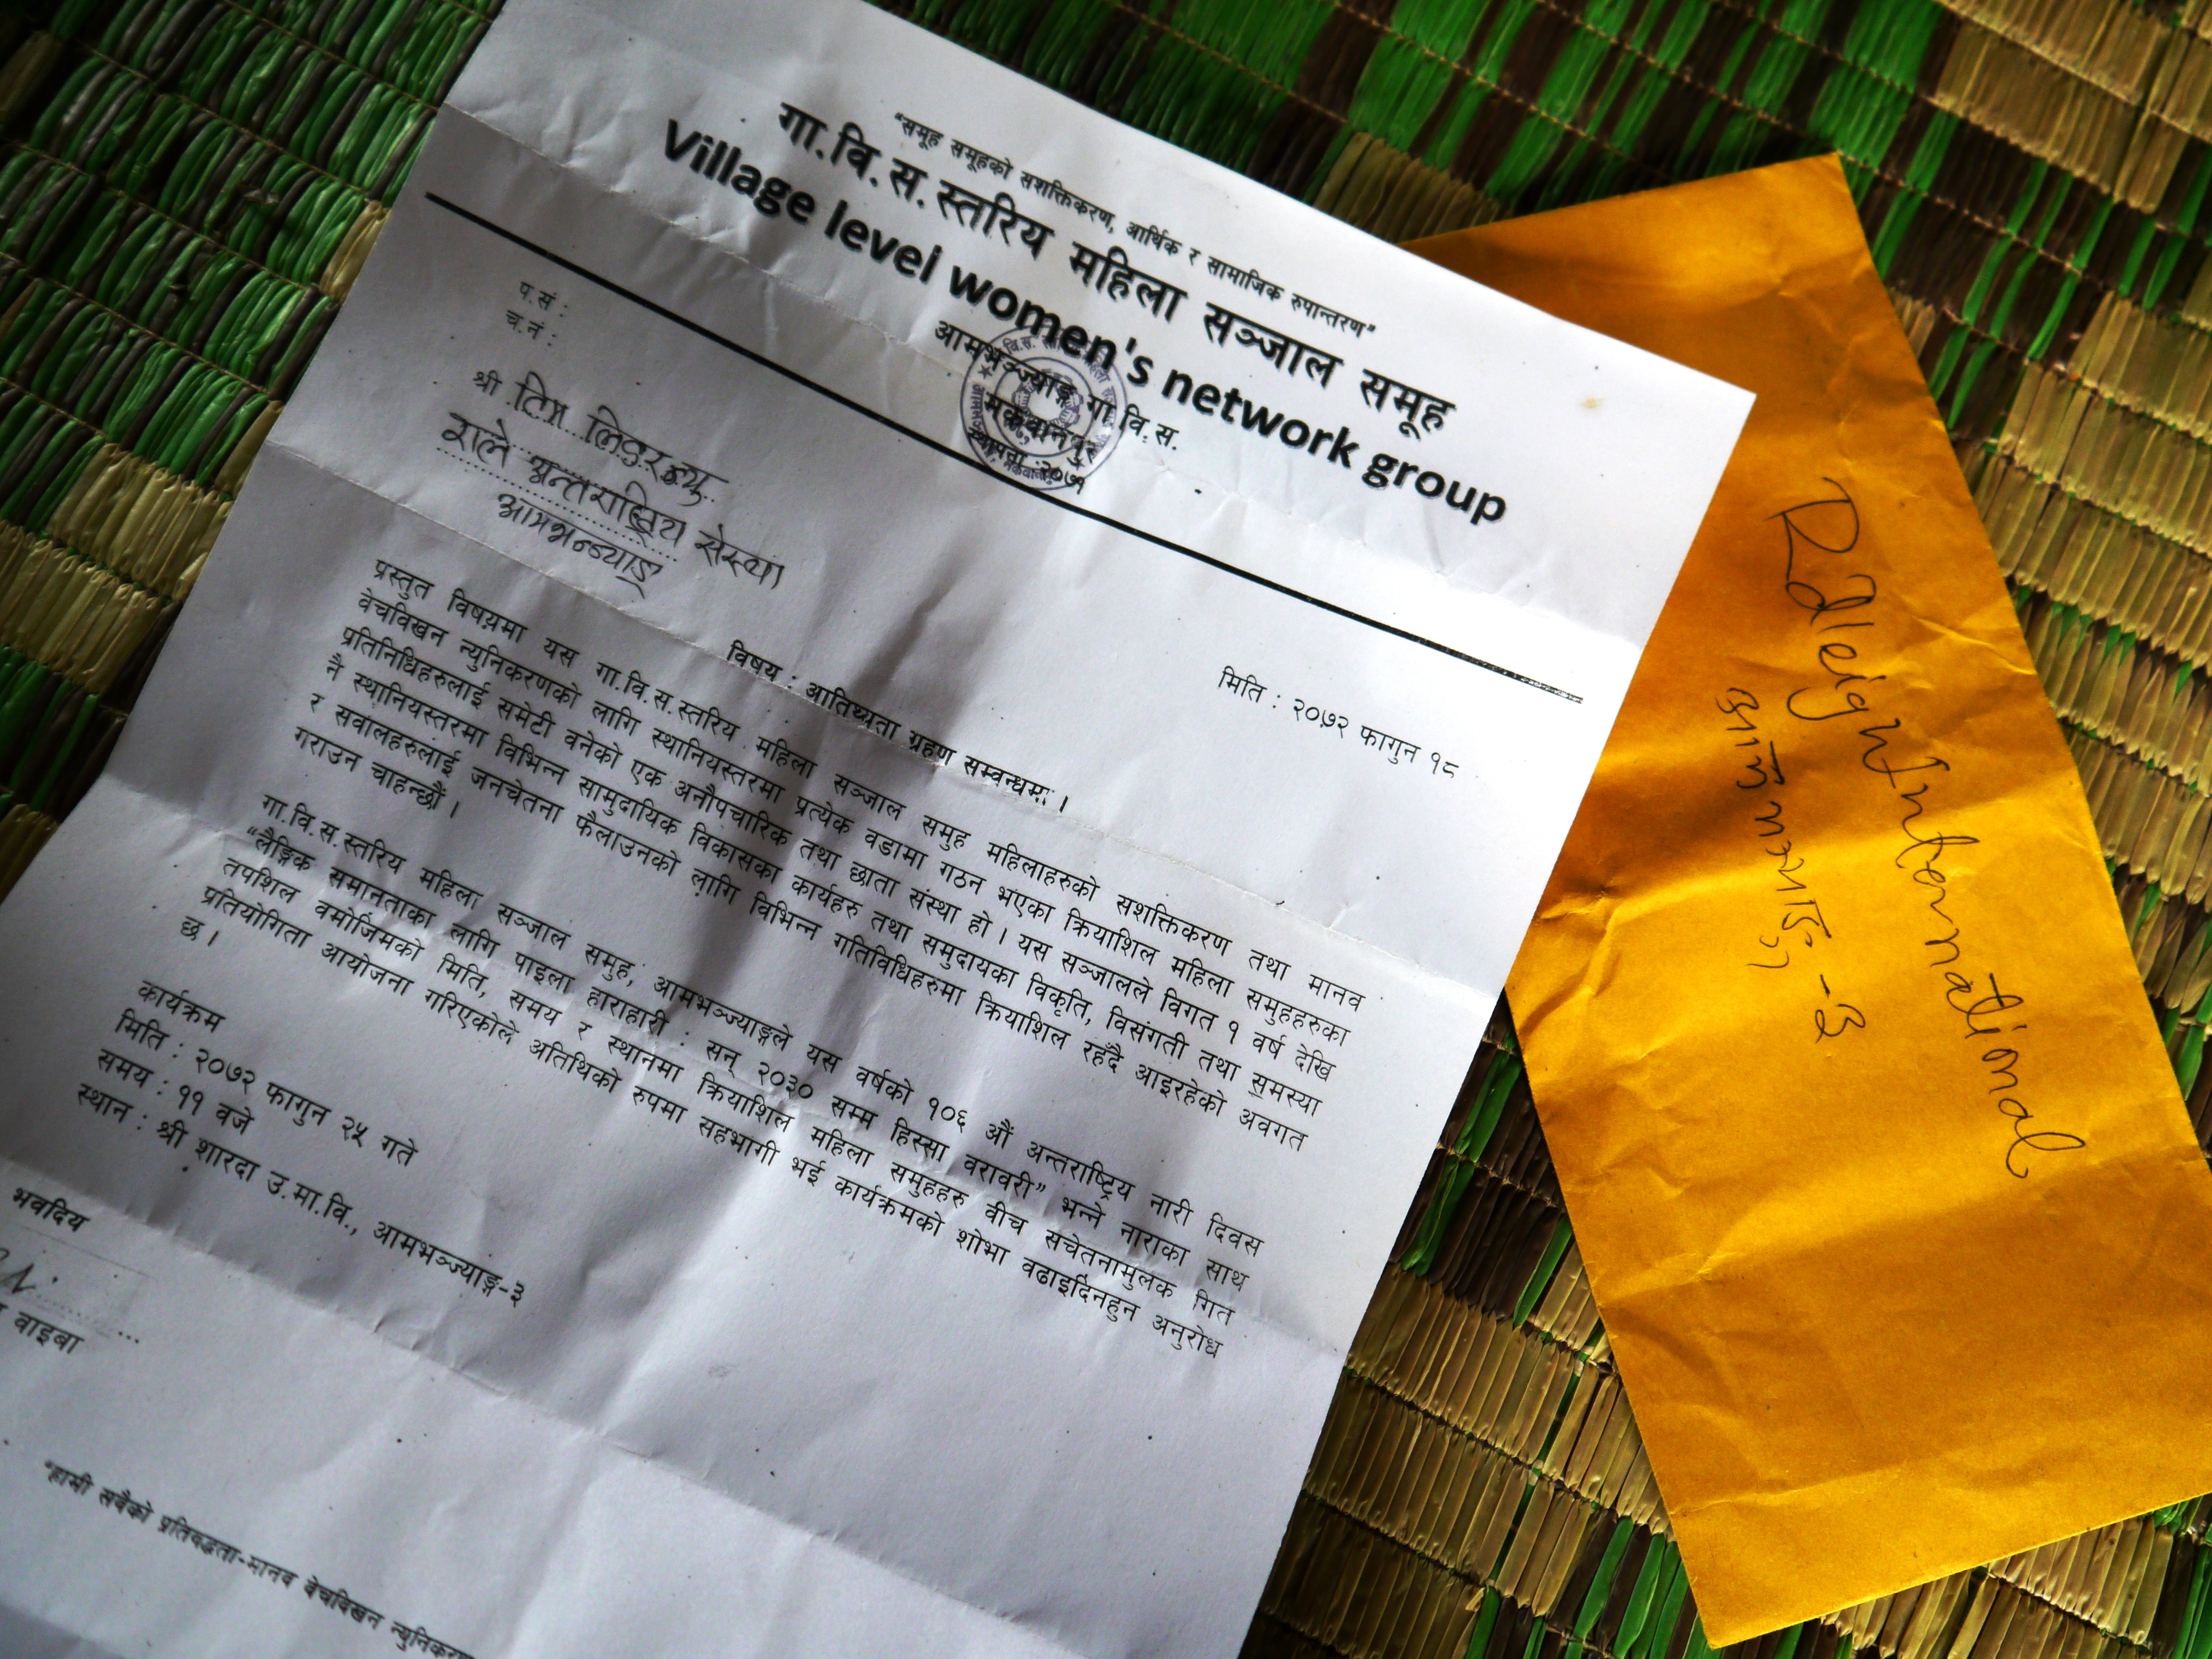 "समूह समूहको सशक्तिकरण, आर्थिक र सामाजिक रुपान्तरण"
गा.वि.स.स्तरिय महिला सञ्जाल समूह
Village level women's network group
आमभञ्ज्याङ्ग गा.वि.स.
मकवानपुर
स्थापना :२०७१
प.सं :
च.नं :
मिति : २०७२ फागुन १८
श्री तिम
राले अन्तराष्ट्रिय संस्था
आमभन्ज्याङ्
विषय : आतिथ्यता ग्रहण सम्वन्धमा ।
प्रस्तुत विषयमा यस गा.वि.स.स्तरिय महिला सञ्जाल समुह महिलाहरुको सशक्तिकरण तथा मानव
वेचविखन न्युनिकरणको लागि स्थानियस्तरमा प्रत्येक वडामा गठन भएका क्रियाशिल महिला समुहहरुका
प्रतिनिधिहरुलाई समेटी वनेको एक अनौपचारिक तथा छाता संस्था हो । यस सञ्जालले विगत १ वर्ष देखि
नै स्थानियस्तरमा विभिन्न सामुदायिक विकासका कार्यहरु तथा समुदायका विकृति, विसंगती तथा समस्या
र सवालहरुलाई जनचेतना फैलाउनको लागि विभिन्न गतिविधिहरुमा क्रियाशिल रहँदै आइरहेको अवगत
गराउन चाहन्छौं ।
गा.वि.स.स्तरिय महिला सञ्जाल समुह, आमभञ्ज्याङ्गले यस वर्षको १०६ औं अन्तराष्ट्रिय नारी दिवस
"लैङ्गिक समानताका लागि पाइला हाराहारी : सन् २०३० सम्म हिस्सा वरावरी" भन्ने नाराका साथ
तपशिल वमोजिमको मिति, समय र स्थानमा क्रियाशिल महिला समुहहरु वीच सचेतनामुलक गित
प्रतियोगिता आयोजना गरिएकोले अतिथिको रुपमा सहभागी भई कार्यक्रमको शोभा वढाइदिनहुन अनुरोध
छ ।
कार्यक्रम
मिति : २०७२ फागुन २५ गते
समय : ११ वजे
स्थान : श्री शारदा उ.मा.वि., आमभञ्ज्याङ्ग-३
भवदिय
वाइबा
"हामी सवैको प्रतिवद्धता-मानव वेचविखन
Raleigh International